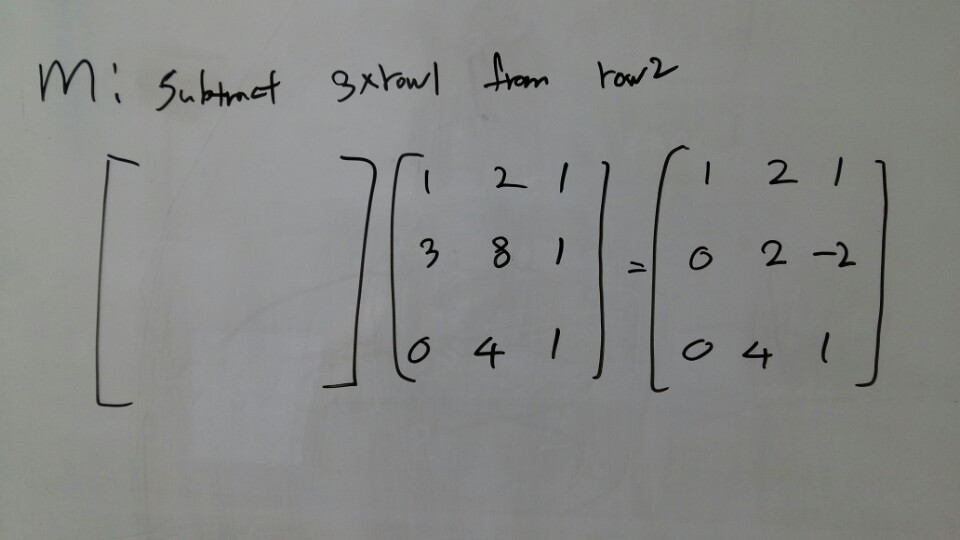 M: Subtract 3xrow1 from row2
[ ] [ 1 2 1 ] [ 1 2 1 ]
3 8 1 = 0 2 -2
0 4 1 0 4 1